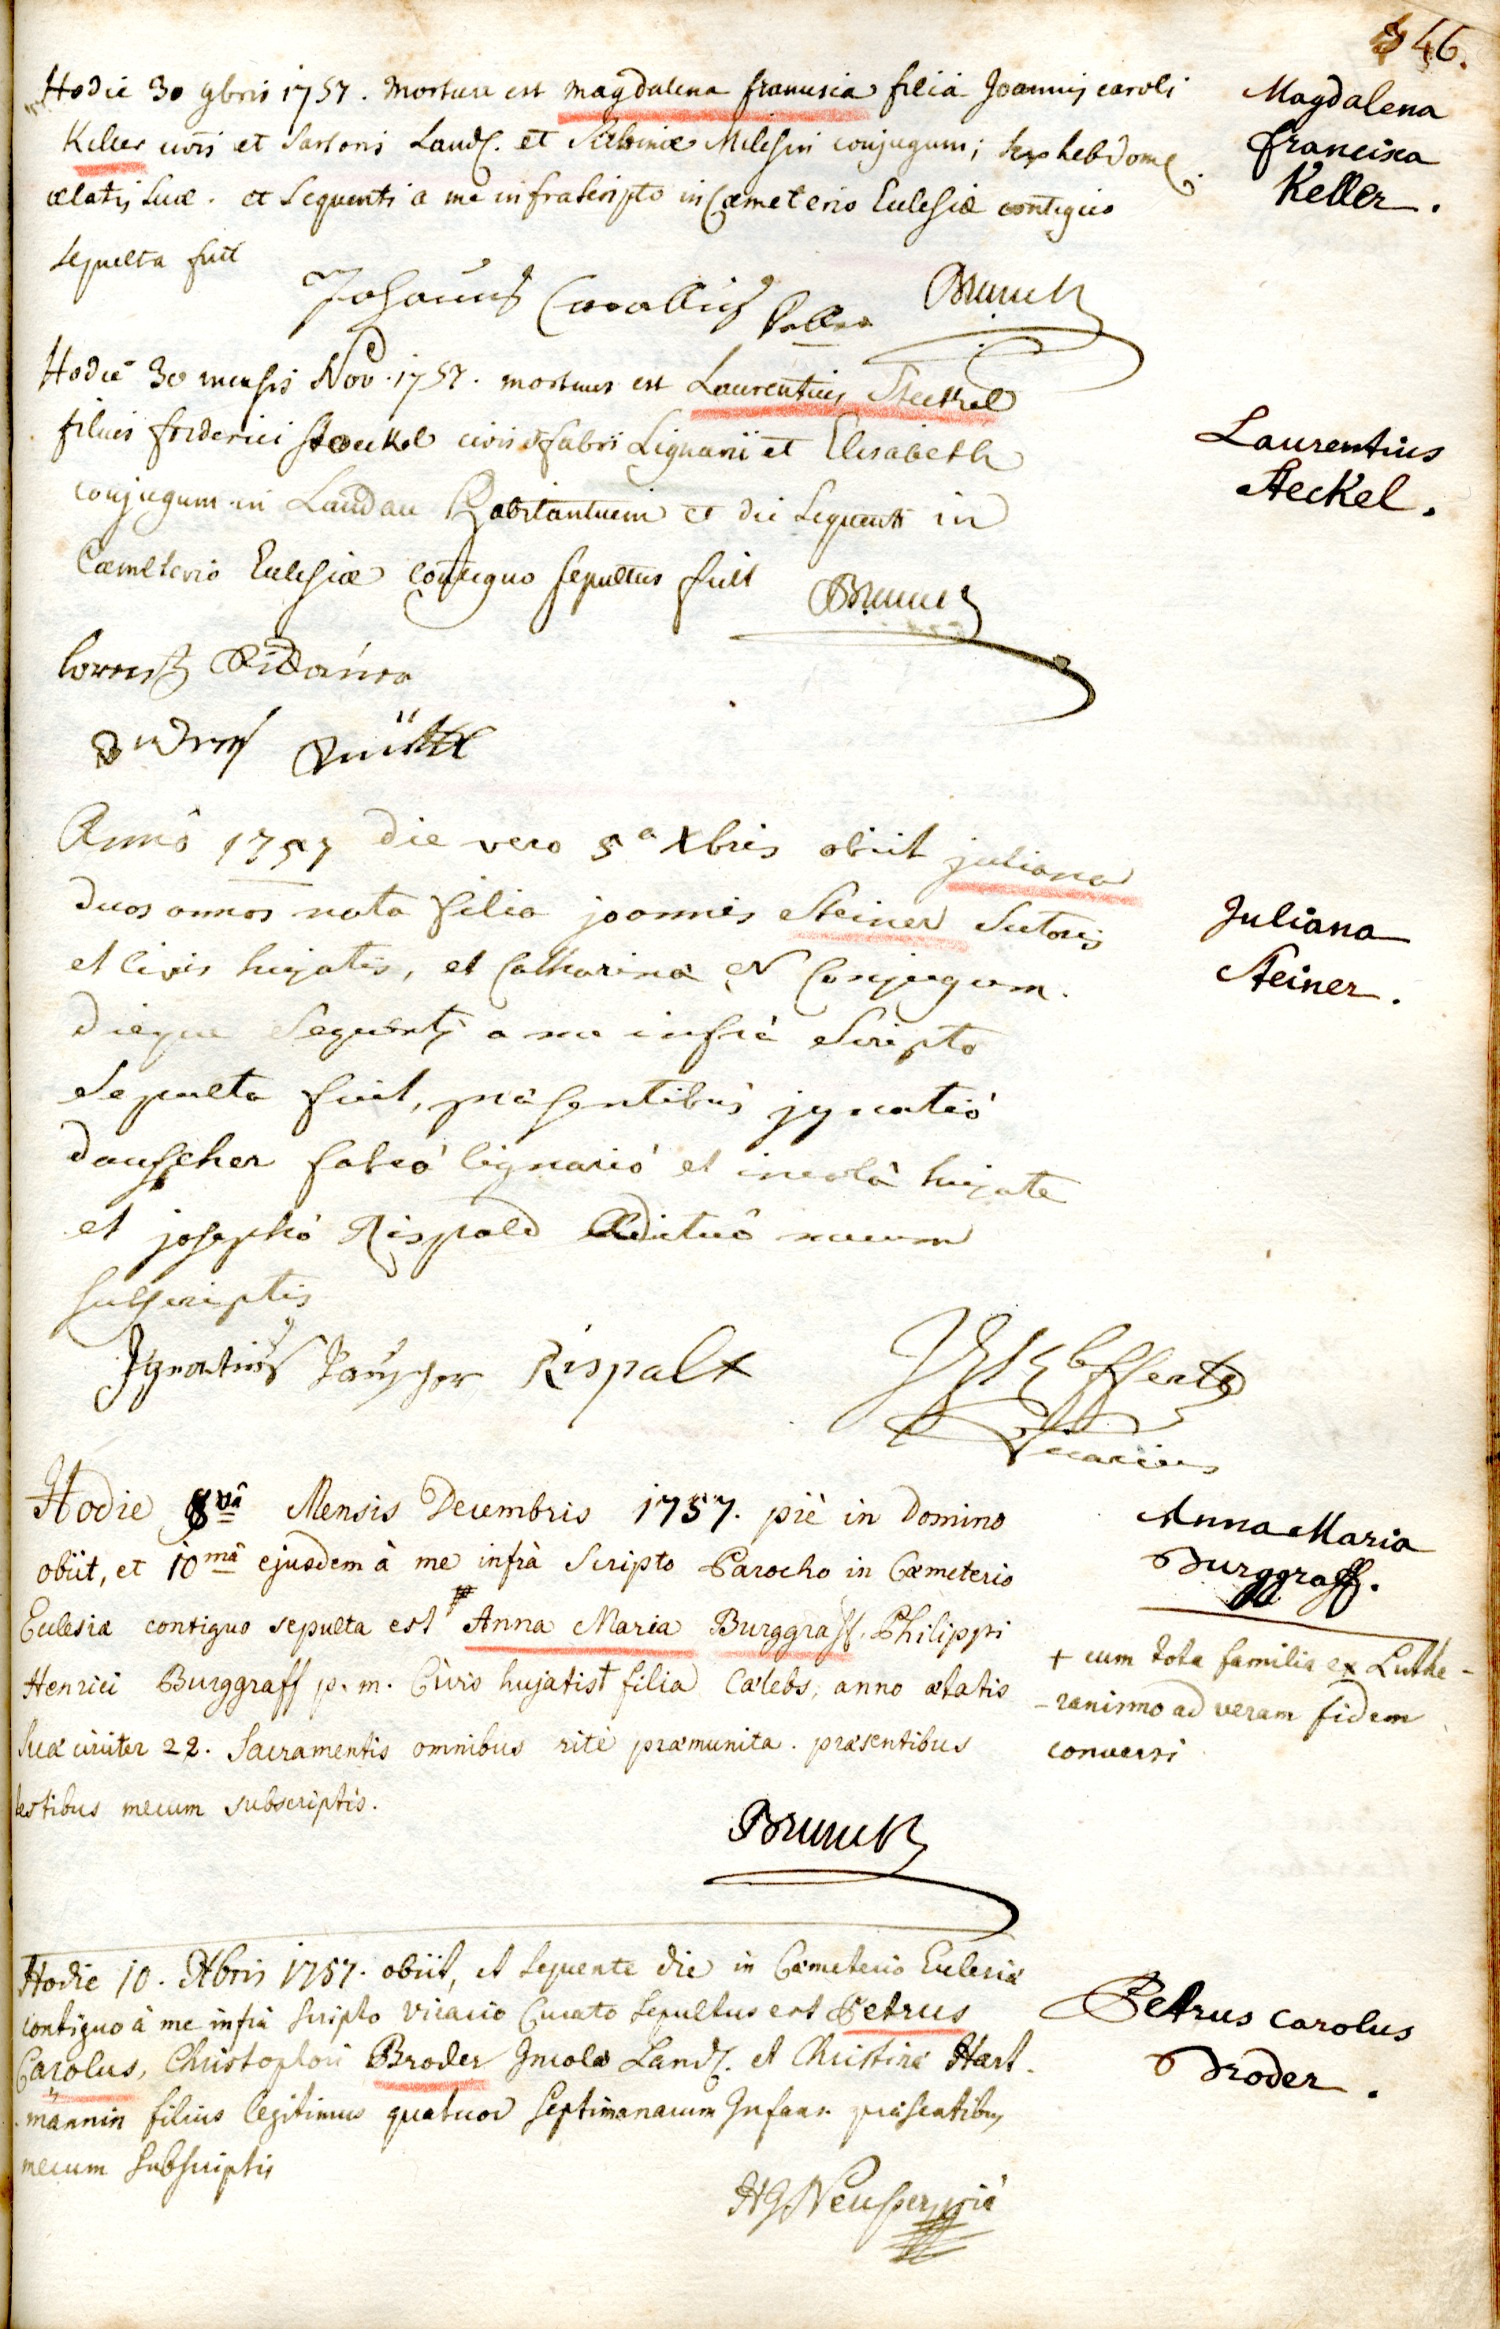 46.
Hodie 30 9bris 1757. mortua est Magdalena francisca filia Joannis caroli
Keller civis et Sartoris Land. et Sabinæ Milesin conjugum; sex hebdom
ætatis suæ. et sequenti a me infrascripto in Cœmeterio Ecclesiæ contiguo
sepulta fuit
Magdalena
francisca
Keller.
Johannes Carollus Keller Brunck
Hodie 30 mensis Nov. 1757. mortuus est Laurentius Steckel
filius friderici Stoeckel civis et fabri Lignarii et Elisabeth
conjugum in Landau habitantium et die sequenti in
Cœmeterio Ecclesiæ contiguo sepultus fuit Brunck
Laurentius
Steckel.
Lorentz
Anno 1757 die vero 5a Xbris obiit juliana
duos annos nata filia joannis Steiner Sutoris
et civis hujatis, et Catharinæ N Conjugum.
dieque sequenti a me infrà Scripto
Sepulta fuit, præsentibus jgnatió
dauscher fabró lignarió et incolâ hujate
et josephó Rispald Ædituô mecum
subscriptis
Juliana
Steiner.
Ignatius Dauscher Rispalt Effertz
Vicarius
Hodie 8vâ Mensis Decembris 1757. piè in Domino
obiit, et 10mâ ejusdem à me infrà Scripto Parocho in Cœmeterio
Ecclesiæ contiguo sepulta est Anna Maria Burggraff, Philippi
Henrici Burggraff p. m. Civis hujatis + filia Cælebs, anno ætatis
suæ circiter 22. Sacramentis omnibus ritè præmunita. præsentibus
testibus mecum subscriptis.
Anna Maria
Burggraff.
+ cum tota familia ex Luthe-
-ranismo ad veram fidem
conversi
Brunck
Hodie 10. Xbris 1757. obiit, et sequente die in Cœmeterio Ecclesiæ
contiguo à me infrà scripto vicario Curato sepultus est Petrus
Carolus, Christophori Broder Incolæ Land. et Christinæ Hart-
mannin filius legitimus quatuor septimanarum Infans. præsentibus
mecum subscriptis
Petrus Carolus
Broder.